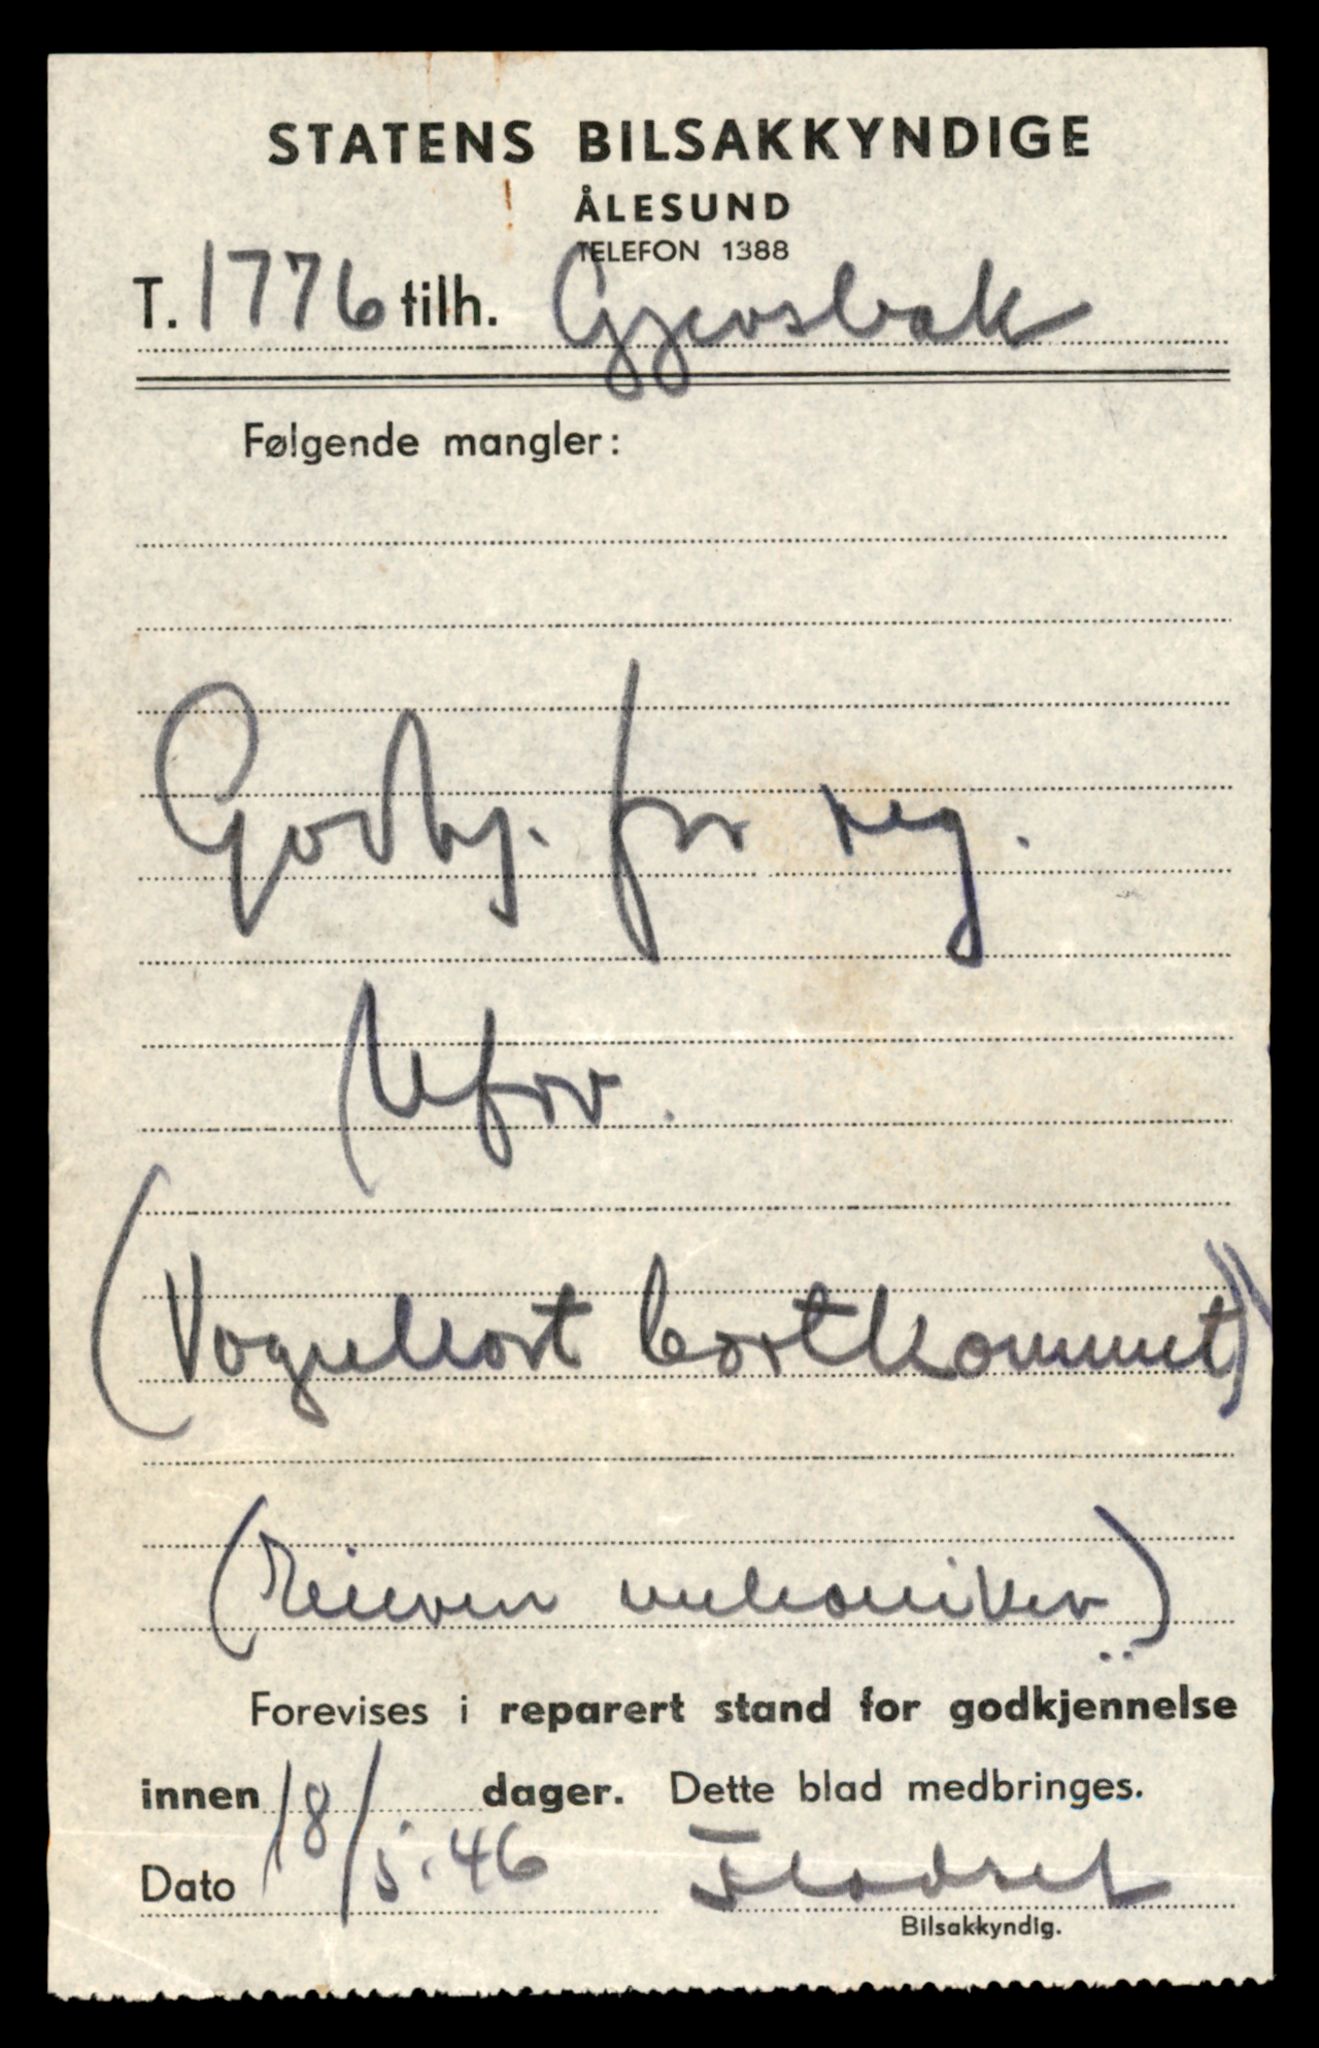 STATENS BILSAKKYNDIGE
ÅLESUND
TELEFON 1388
T. 1776 tilh. Gjersbak
Følgende mangler:
Godkj. for reg.
(Vognkort bortkommet)
mekaniker)
Forevises i reparert stand for godkjennelse
innen dager. Dette blad medbringes.
Dato 18/5.46 Flodset
Bilsakkyndig.